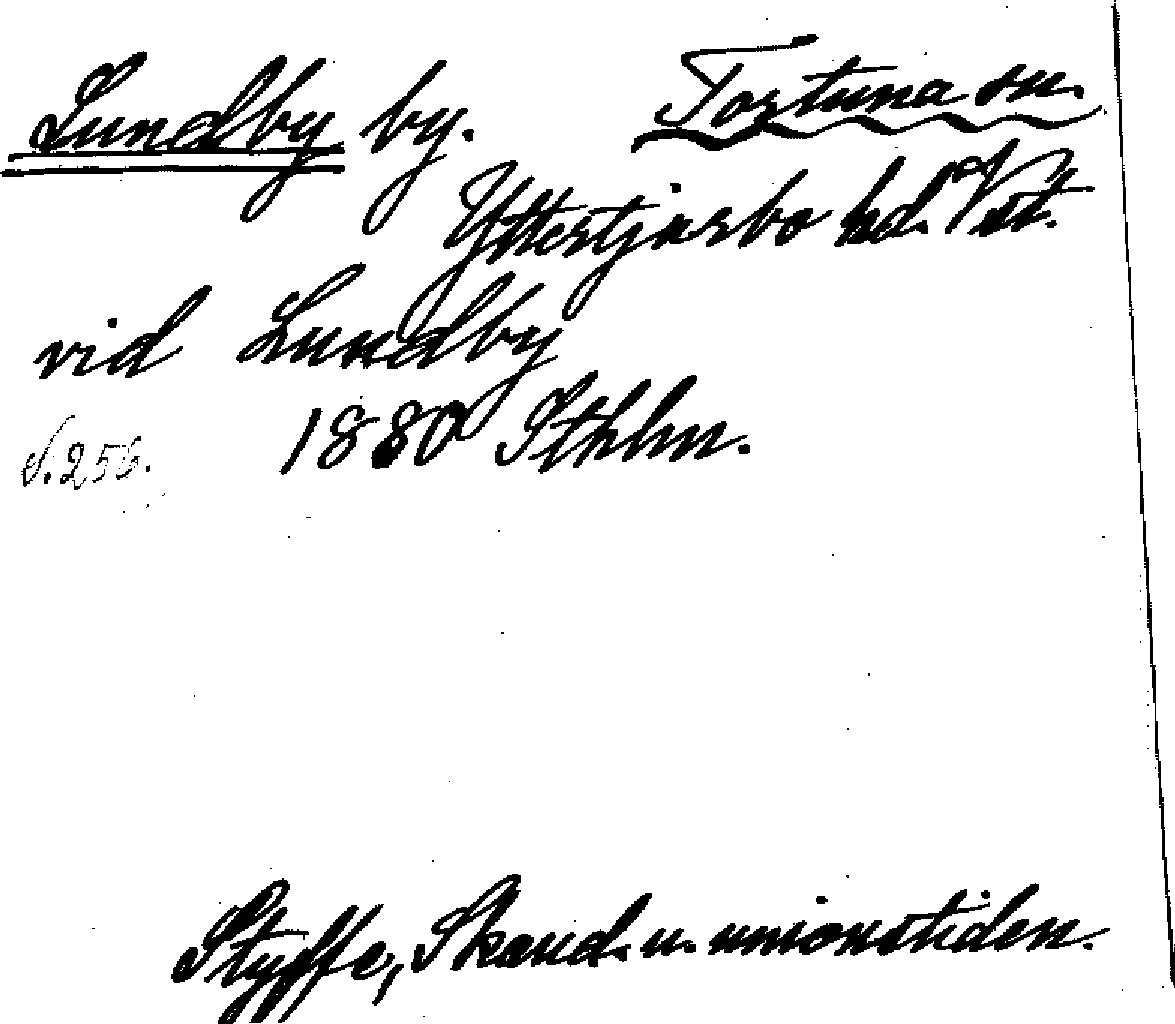 Lundby by. Tortuna sn.
Yttertjurbo hd. Vstm.
vid Lundby
s. 256. 1880 Sthlm.
Styffe, Skand. u. unionstiden.